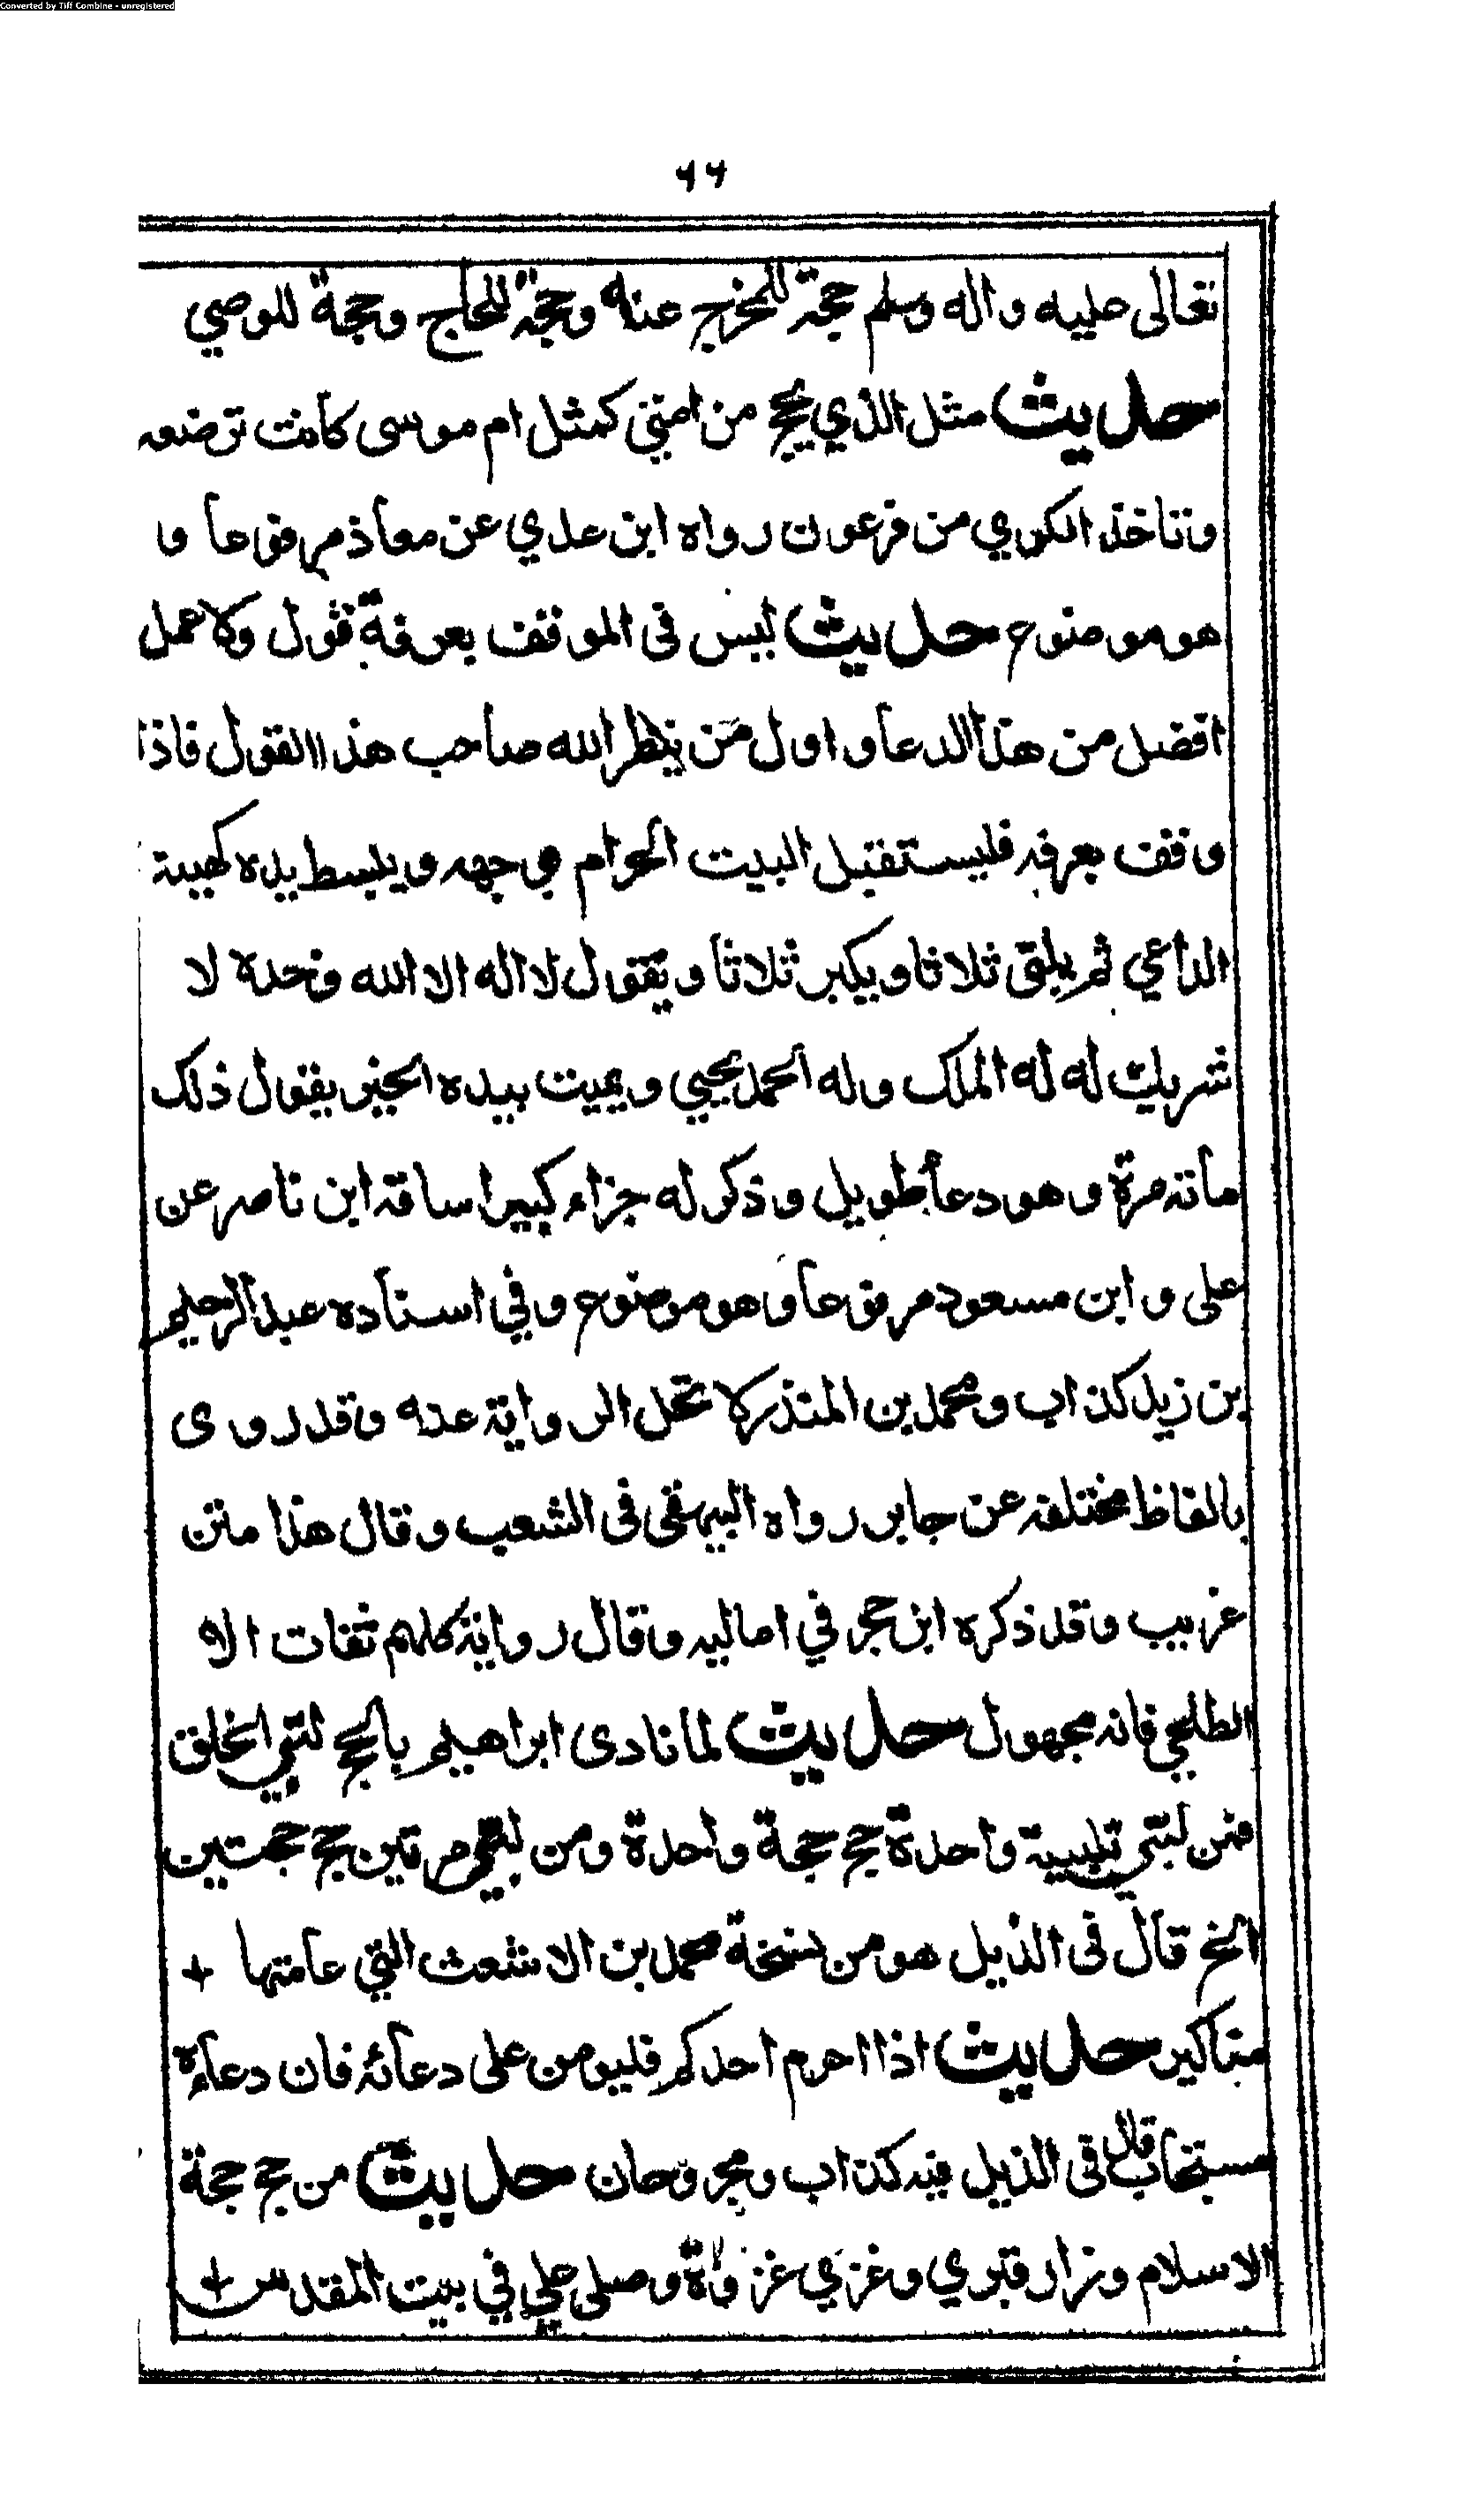 Converted by Tiff Combine - unregistered
٦٦
تعالى عليه واله وسلم حجة للمخرج عنه وحجة للحاج وحجة للوصي
حديث مثل الذي يحج من امتي كمثل ام موسى كانت ترضعه
وتاخذ الكري من فرعون رواه ابن عدي عن معاذ مرفوعا و
هو موضوع حديث ليس فى الموقف بعرفة قول ولا عمل
افضل من هذا الدعا و اول من ينظر الله صاحب هذا القول فاذا
وقف بعرفة فليستقبل البيت الحرام بوجهه ويبسط يده كهيئة
الداعي ثم يلبي ثلاثا ويكبر ثلاثا ويقول لا اله الا الله وحده لا
شريك له له الملك وله الحمد يحيي ويميت بيده الخير يقول ذلك
مأته مرة وهو دعأ طويل وذكر له جزاء كبيرا ساقه ابن ناصر عن
على وابن مسعود مرفوعا وهو موضوع وفي اسناده عبد الرحيم
بن زيد كذاب ومحمد بن المنذر لا تحل الرواية عنه وقد روى
بالفاظ مختلفه عن جابر رواه البيهقى فى الشعب وقال هذا متن
غريب وقد ذكره ابن حجر في اماليه وقال رواية كلهم ثقات الا
الطلحي فانه مجهول حديث لما نادى ابراهيم بالحج لبى الخلق
فمن لبى تلبية واحدة حج حجة واحدة ومن لبى مرتين حج حجتين
الخ قال فى الذيل هو من نسخة محمد بن الاشعث التي عامتها +
مناكير حديث اذا احرم احدكم فليومن على دعائه فان دعاءه
مستجاب قال فى الذيل فيه كذاب ومجروحان حديث من حج حجة
الاسلام وزار قبري وغزي غزوة وصلى علي في بيت المقدس +